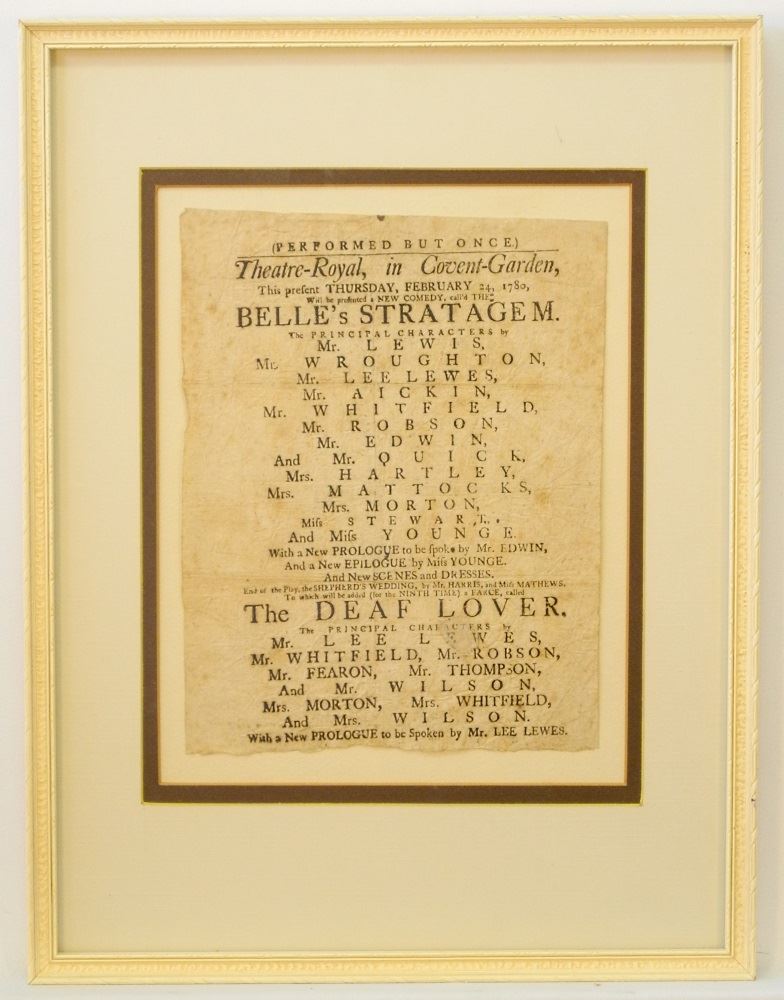 (PERFORMED BUT ONCE.)
Theatre-Royal, in Covent-Garden,
This preſent THURSDAY, FEBRUARY 24, 1780,
Will be preſented a NEW COMEDY, call'd THE
BELLE's STRATAGEM.
The PRINCIPAL CHARACTERS by
Mr. LEWIS,
Mr. WROUGHTON,
Mr. LEE LEWES,
Mr. AICKIN,
Mr. WHITFIELD,
Mr. ROBSON,
Mr. EDWIN,
And Mr. QUICK,
Mrs. HARTLEY,
Mrs. MATTOCKS,
Mrs. MORTON,
Miſs STEWART,
And Miſs YOUNGE.
With a New PROLOGUE to be ſpoke by Mr. EDWIN,
And a New EPILOGUE by Miſs YOUNGE.
And New SCENES and DRESSES.
End of the Play, the SHEPHERD'S WEDDING, by Mr. HARRIS, and Miſs MATHEWS.
To which will be added (for the NINTH TIME) a FARCE, called
The DEAF LOVER.
The PRINCIPAL CHARACTERS by
Mr. LEE LEWES,
Mr. WHITFIELD, Mr. ROBSON,
Mr. FEARON, Mr. THOMPSON,
And Mr. WILSON,
Mrs. MORTON, Mrs. WHITFIELD,
And Mrs. WILSON.
With a New PROLOGUE to be Spoken by Mr. LEE LEWES.